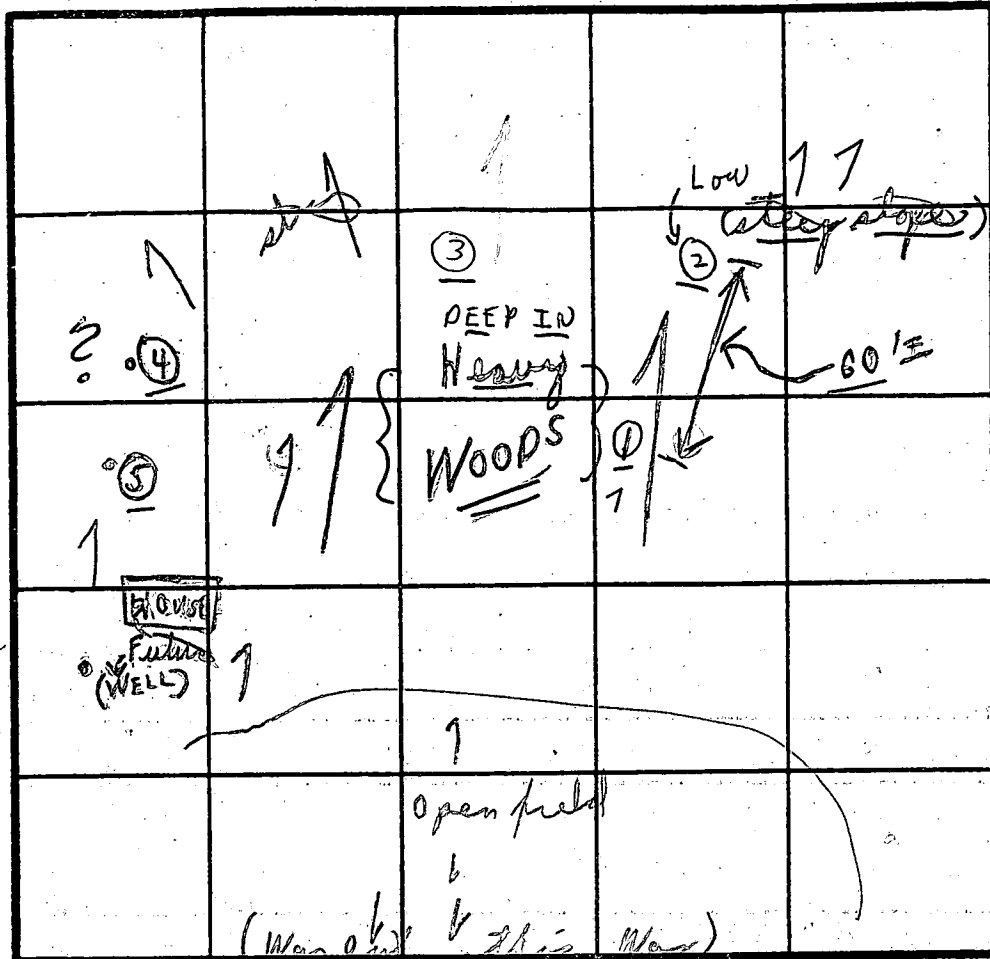 Low
(steep slope)
③
②
DEEP IN
Heavy
WOODS
?
④
60'±
①
⑤
HOUSE
Future
(WELL)
open field
(Way out this Way)